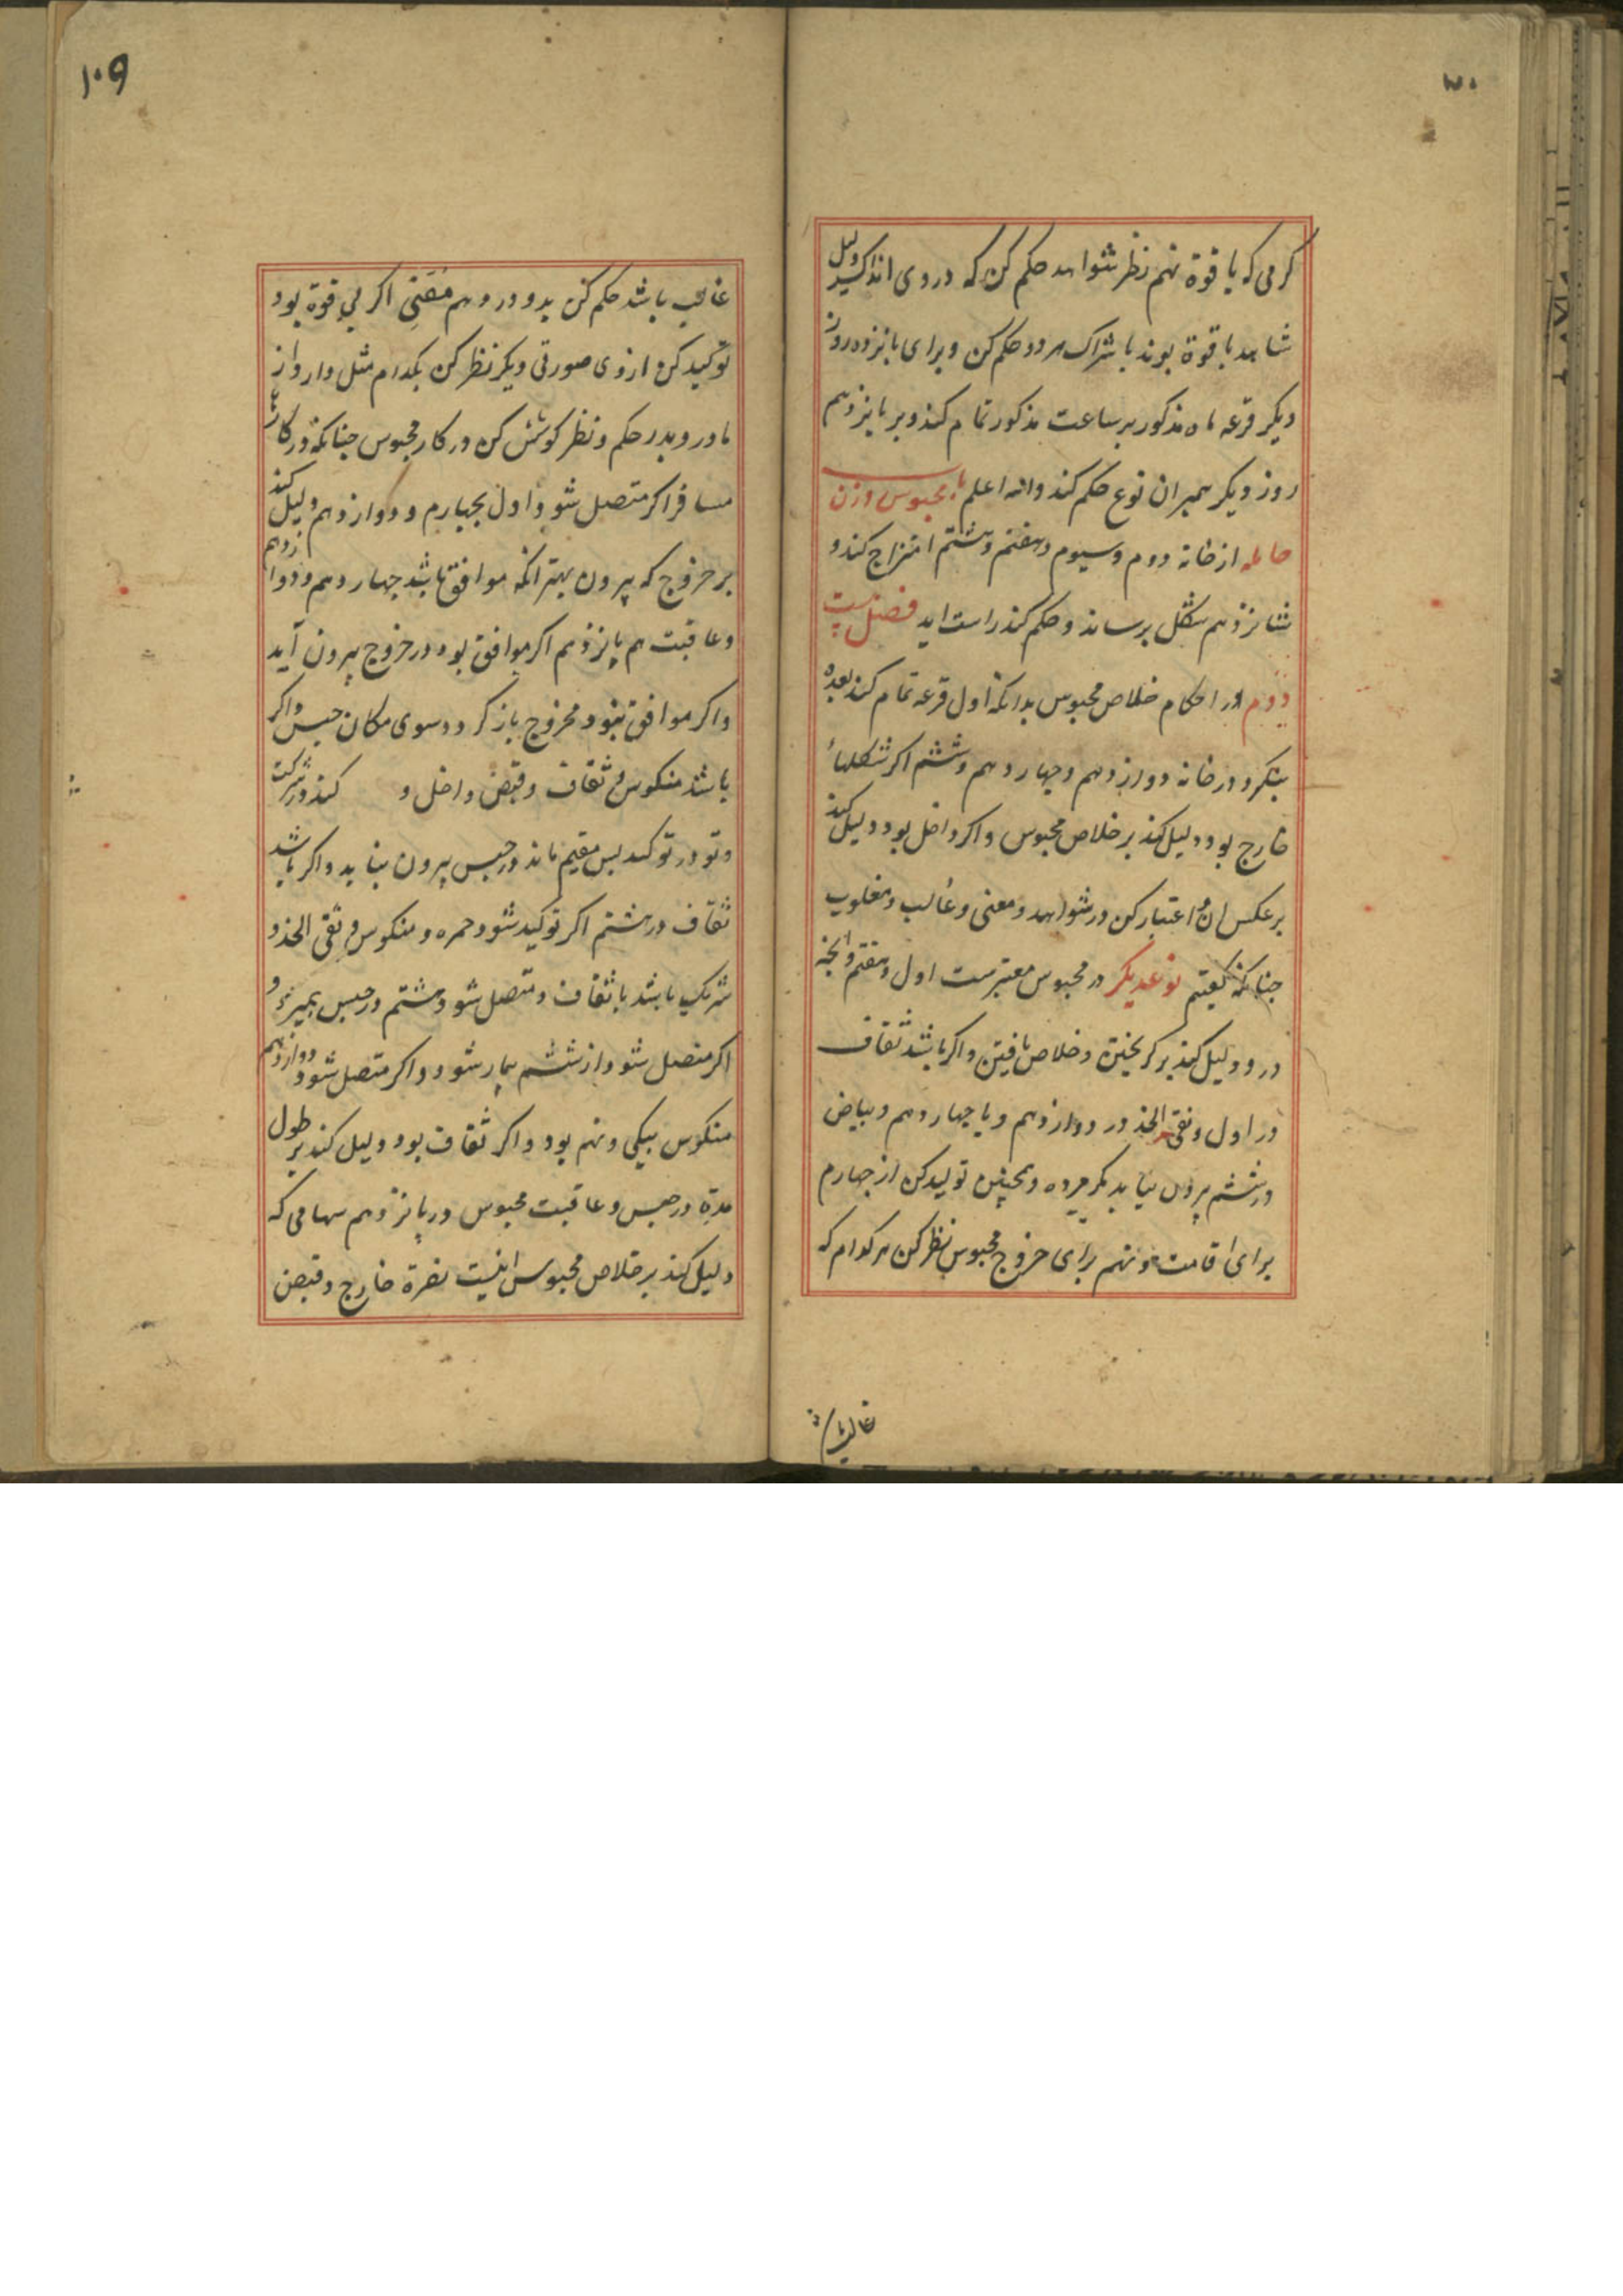 کرمی که با قوة نهم نظر شواهد حکم کن که در وی اندک دلیل
شاهد با قوة بوند باشتراک هردو حکم کن و برای پانزده روز
دیکر قرعه ماه مذکور بر ساعت مذکور تمام کند و بر پانزدهم
روز دیکر بمیران نوع حکم کند والله اعلم باب محبوس و زن
حامله از خانه دوم و سیوم و هفتم و هشتم امتزاج کند و
شانزدهم شکل برساند و حکم کند راست اید فصل بیست
دوم در احکام خلاص محبوس بدانکه اول قرعه تمام کند بعده
بنکرد در خانه دوازدهم و چهاردهم و ششم اکر شکلهاء
خارج بود دلیل کند بر خلاص محبوس و اکر داخل بود دلیل کند
بر عکس ان و اعتبار کن در شواهد و معنی و غالب و مغلوب
چنانکه کفتیم نوعدیکر در محبوس معتبرست اول و هفتم و انچه
درو دلیل کند بر کریختن و خلاص یافتن و اکر باشد ثقاف
در اول و نقی الخد در دوازدهم و یا چهاردهم و بیاض
در ششم برون نیاید مکر مرده و همچنین تولید کن از چهارم
برای اقامت و نهم برای خروج محبوس نظر کن هر کدام که
غالب باشد
۱۰۹
غالب باشد حکم کن بدو و در دهم مقتنی اکر بی قوة بود
توکید کن ازوی صورتی دیکر نظر کن بکدام مثل دارد از
مادر و پدر حکم و نظر کوشش کن در کار محبوس چنانکه در کار
مسافر اکر متصل شود اول بچهارم و دوازدهم دلیل کند
بر خروج که بیرون بهتر انکه موافق باشد چهاردهم و دوازدهم
و عاقبت هم پانزدهم اکر موافق بود در خروج بیرون آید
و اکر موافق نبود مخروج باز کردد سوی مکان حبس و اکر
باشد منکوس و ثقاف و قبض داخل و کند در شرکت
و تو در توکید پس مقیم ماند در حبس بیرون نیاید و اکر باشد
ثقاف در هشتم اکر توکید شود حمره و منکوس و نقی الخد و
شریک باشد با ثقاف و متصل شود هشتم در حبس بمیرد و
اکر متصل شود از ششم بیمار شود و اکر متصل شود دوازدهم
منکوس بیکی و نهم بود و اکر ثقاف بود دلیل کند بر طول
مدة در حبس و عاقبت محبوس در پانزدهم سهامی که
دلیل کند بر خلاص محبوس اینست نصرة خارج و قبض